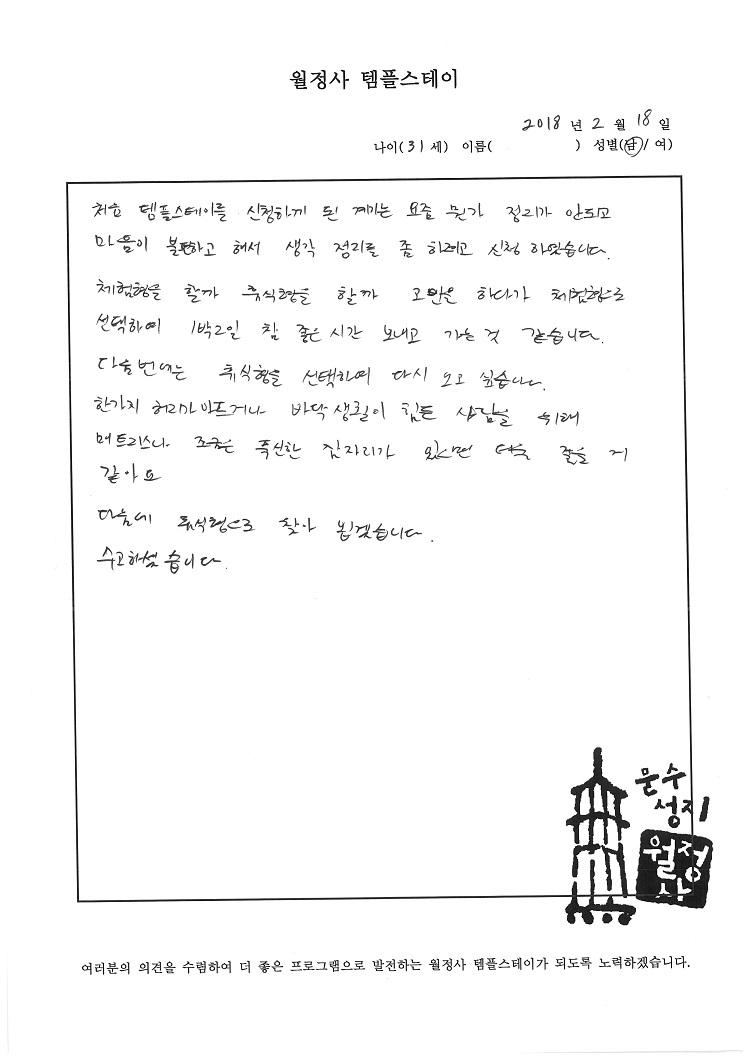 월정사 템플스테이
2018 년 2 월 18 일
나이(31세) 이름( ) 성별(남/여)
처음 템플스테이를 신청하게 된 계기는 요즘 뭔가 정리가 안되고
마음이 불편하고 해서 생각 정리를 좀 하려고 신청 하였습니다.
체험형을 할까 휴식형을 할까 고민을 하다가 체험형으로
선택하여 1박2일 참 좋은 시간 보내고 가는 것 같습니다.
다음번에는 휴식형을 선택하여 다시 오고 싶습니다.
한가지 허리가 아프거나 바닥 생활이 힘든 사람을 위해
매트리스나 조금은 푹신한 잠자리가 있으면 더욱 좋을 거
같아요
다음에 휴식형으로 찾아 뵙겠습니다.
수고하셨습니다.
문수
성지
월정
사
여러분의 의견을 수렴하여 더 좋은 프로그램으로 발전하는 월정사 템플스테이가 되도록 노력하겠습니다.